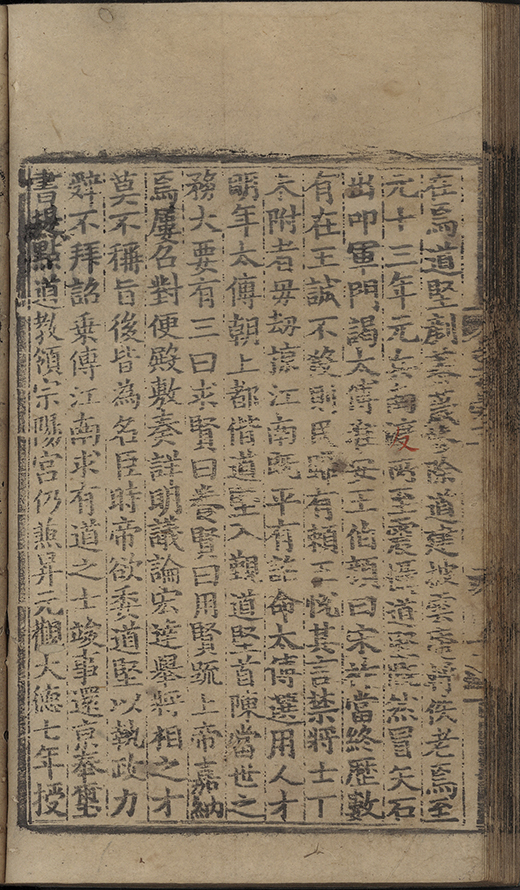 在焉道堅剷除道建披雲菴將佚老焉至
元十三年元兵南渡所至震慴道堅毅然冒矢石
出叩軍門謁太傅淮安王伯顏曰宋祚當終歷數
有在王誠不殺則民歸有賴王悅其言禁將士丁
未附者毋劫掠江南既平有詔命太傅選用人才
明年太傅朝上都偕道堅入覲道堅首陳當世之
務大要有三曰求賢曰養賢曰用賢疏上帝嘉納
焉屢召對便殿敷奏詳明議論宏達舉將相之才
莫不稱旨後皆為名臣時帝欲委道堅以執政力
辭不拜詔乘傳江南求有道之士竣事還京奉璽
書提點道教領宗陽宮仍兼昇元觀大德七年授